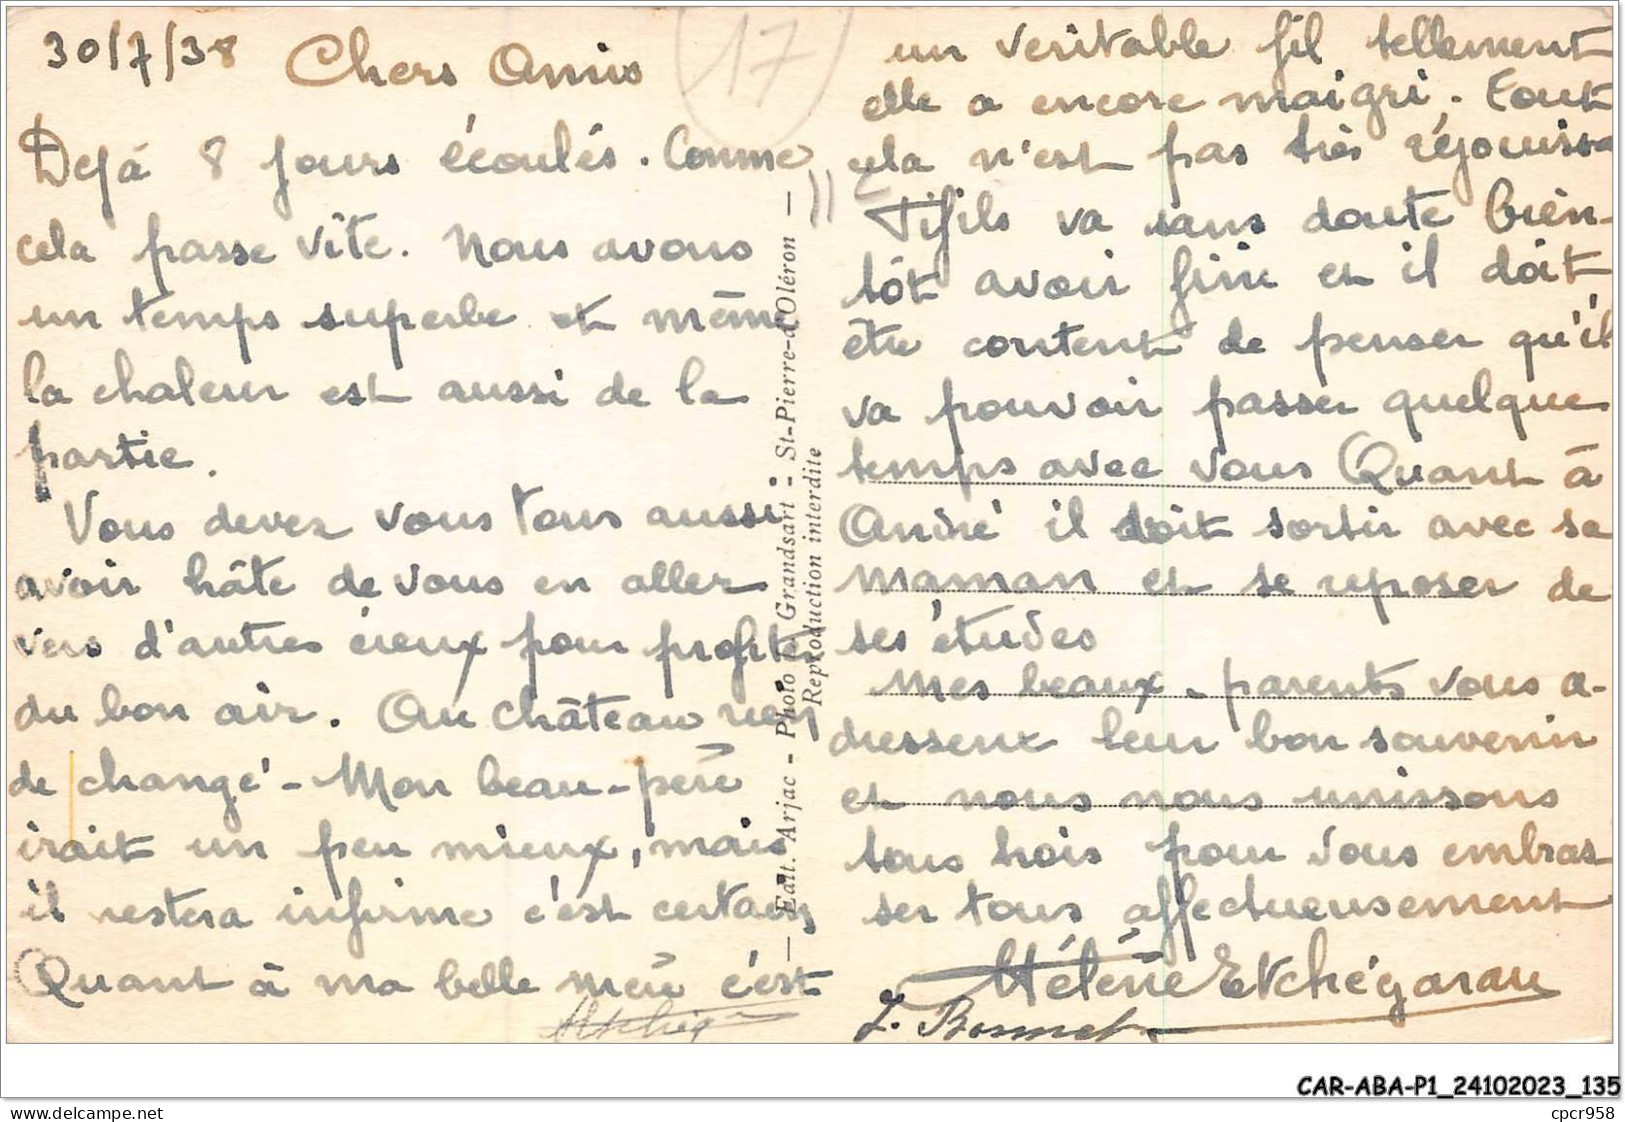 30/7/38 Chers Amis
17
Dejà 8 jours écoulés. Comme
cela passe vite. Nous avons
un temps superbe et même
la chaleur est aussi de la
partie.
Vous devez vous tous aussi
avoir hâte de vous en aller
vers d'autres cieux pour profiter
du bon air. Au château rien
de changé - Mon beau-père
irait un peu mieux, mais
il restera infirme c'est certain
Quant à ma belle mère c'est
un véritable fil tellement
elle a encore maigri. Tout
cela n'est pas très réjouissa
Tifils va sans doute bien-
tôt avoir fini et il doit
être content de penser qu'il
va pouvoir passer quelque
temps avec vous Quant à
André il doit sortir avec sa
maman et se reposer de
ses études
Mes beaux-parents vous a-
dressent leur bon souvenir
et nous nous unissons
tous trois pour vous embras
ser tous affectueusement
Hélène Etchégaray
J. Bonnet
— Edit. Arjac - Photo Grandsart - St-Pierre-d'Oléron —
Reproduction interdite
CAR-ABA-P1_24102023_135
www.delcampe.net
cpcr958